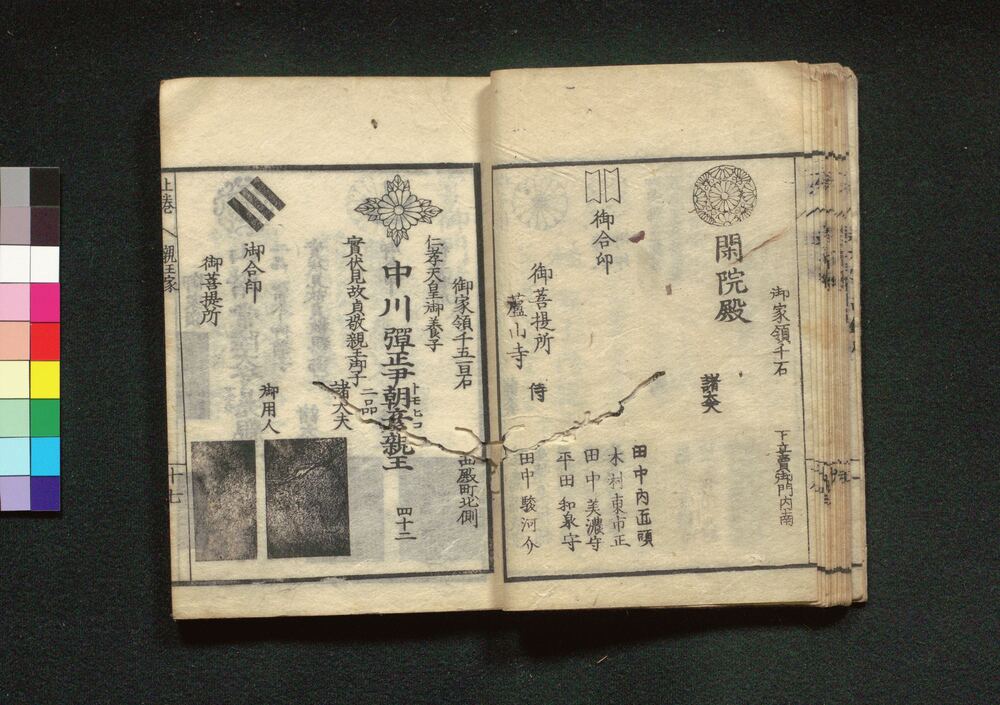 閑院殿
御家領千石
下立賣御門内南
諸大夫
田中内匠頭
木村東市正
田中美濃守
平田和泉守
御合印
御菩提所
蘆山寺
侍
田中駿河介
御家領千五百石
西殿町北側
仁孝天皇御養子
中川彈正尹朝彦親王
トモヒコ
四十二
實伏見故貞敬親王御子
二品
諸大夫
御用人
御合印
御菩提所
上巻
親王家
十七